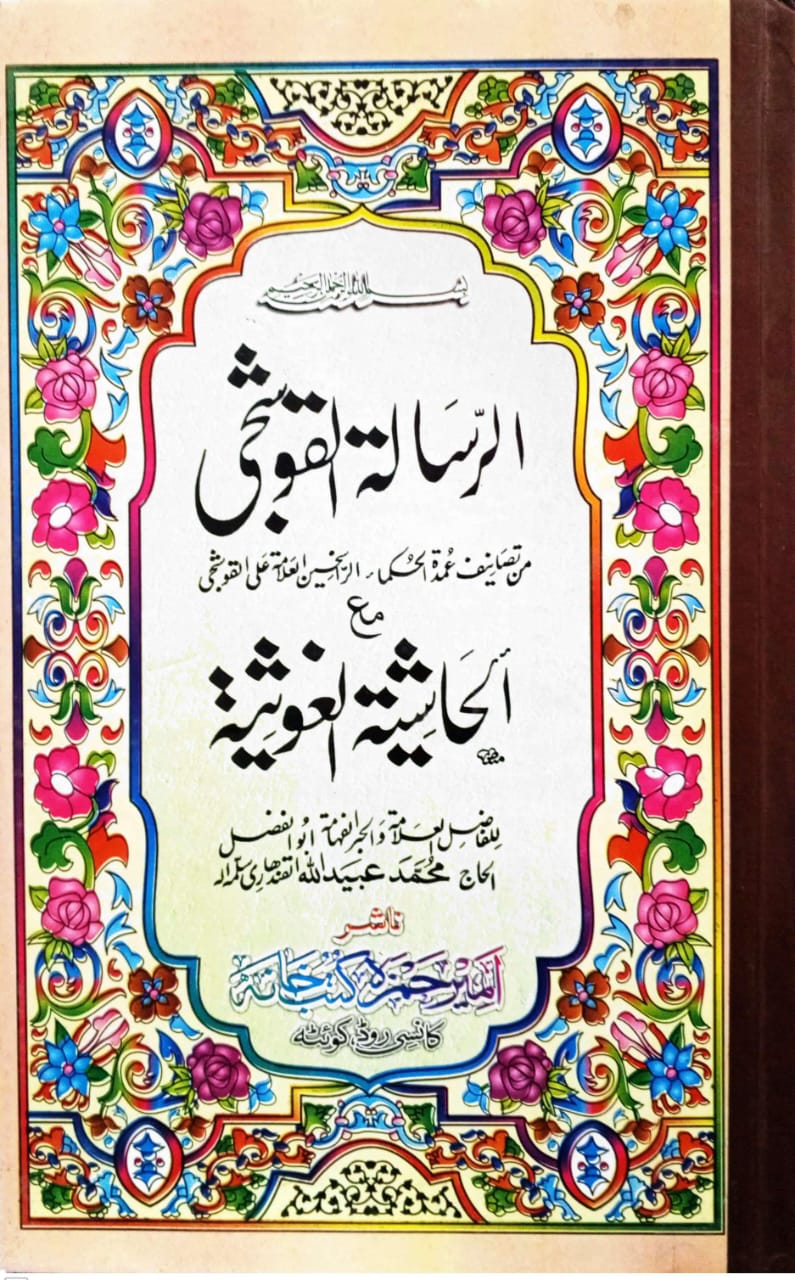 بسم الله الرحمن الرحيم
الرّسَالة القوشجی
من تصانیف عُمدة الحُکماء الراسخین العلامة علی القوشجی
مع
الحَاشِیَة الغَوثِیة
للفاضل العلامة والحبر الفهامة ابو الفضل
الحاج محمد عبیدالله القندهاری
ناشر
امیر حمزہ کتب خانہ
کانسی روڈ، کوئٹہ